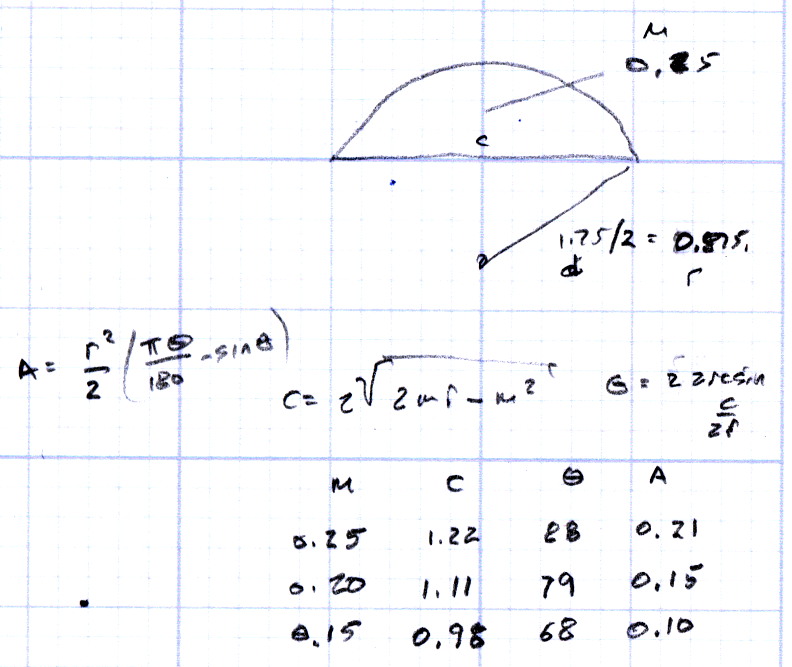 M
0.25
C
1.75/2 = 0.875
d
r
A = r²/2 (πθ/180 - sin θ)
C = 2√(2mr - m²)
θ = 2 arcsin C/2r
M C θ A
0.25 1.22 88 0.21
0.20 1.11 79 0.15
0.15 0.98 68 0.10